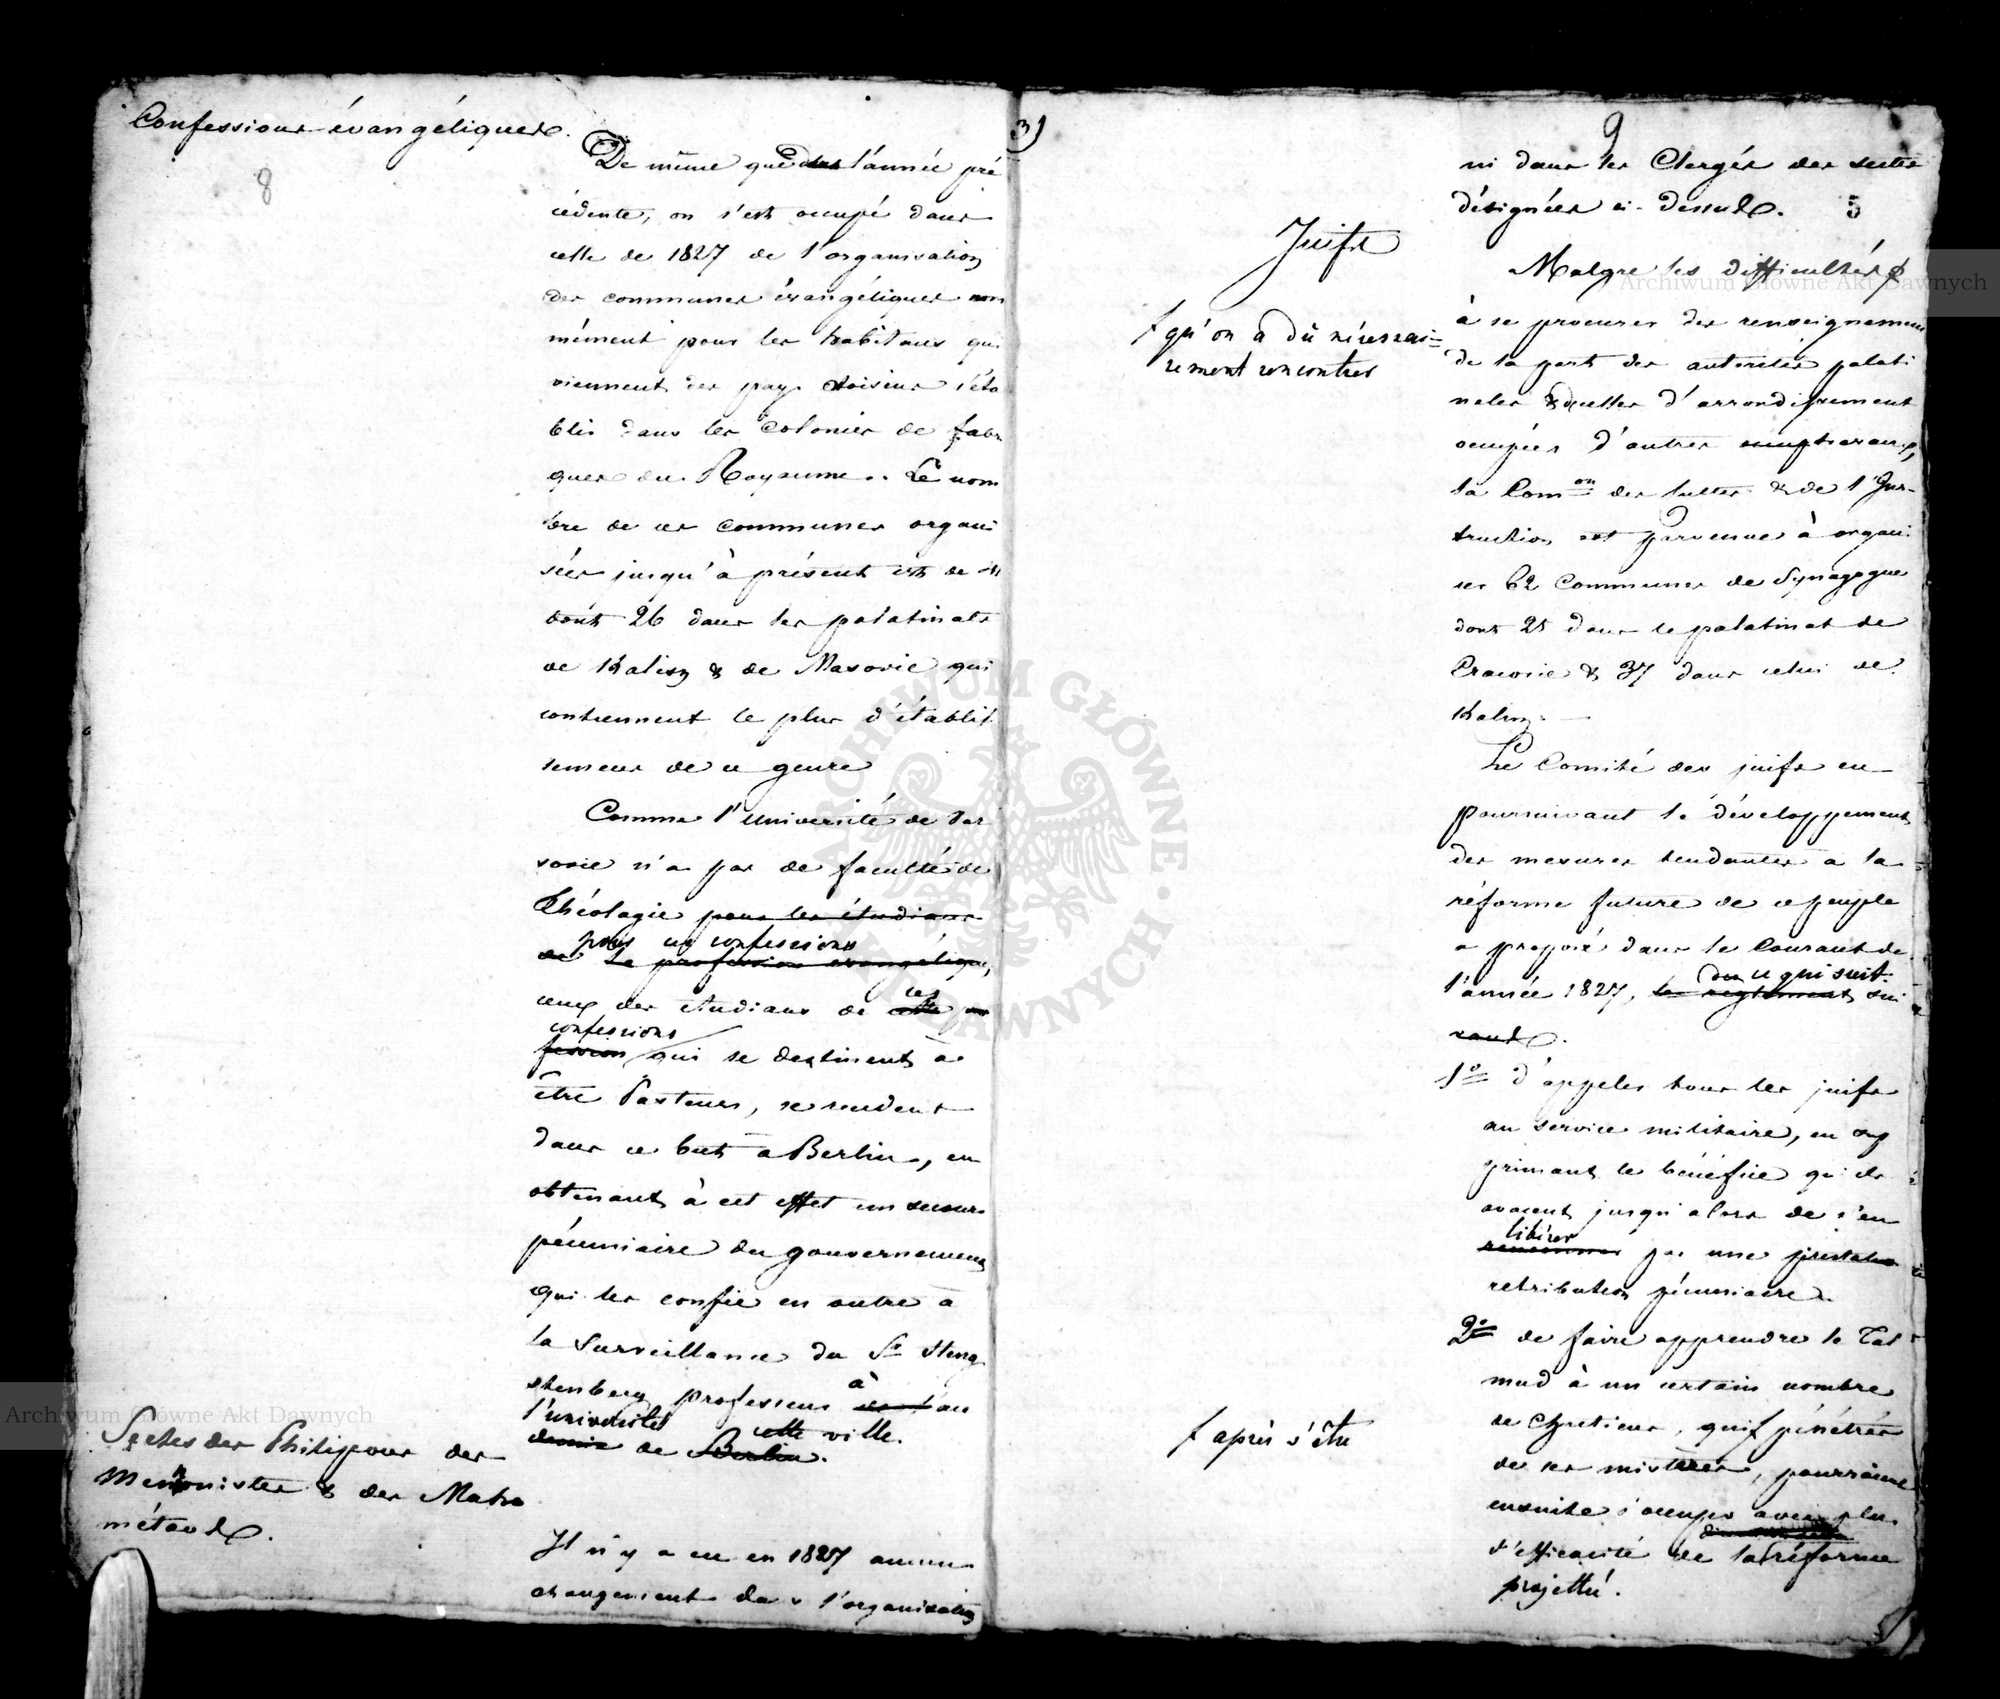 Confessions évangéliques.
8
De même que dans l'année pré
cédente, on s'est occupé dans
celle de 1827 de l'organisation
des communes évangéliques nom
mément pour les habitans qui
viennent des pays voisins s'éta
blir dans les Colonies de fabri
ques du Royaume. Le nom
bre de ces communes organi
sées jusqu'à présent est de
dont 26 dans les palatinats
de Kalisz & de Masovie qui
contiennent le plus d'établis
semens de ce genre
Comme l'université de Var
sovie n'a pas de faculté de
Théologie pour les étudians
pour ces confessions
de la profession évangélique,
ces
ceux des étudians de cette pro
confessions
fession qui se destinent à
être Pasteurs, se rendent
dans ce but à Berlin, en
obtenant à cet effet un secours
pécuniaire du gouvernement
qui les confie en outre à
la Surveillance du Sr Heng
stenberg professeur à
l'université cette ville.
de Berlin.
Sectes des Philipons des
Mennonistes & des Maho
métans.
Il n'y a eu en 1827 aucun
changement dans l'organisation
3)
9
ni dans les Clergés des sectes
désignées ci-dessus. 5
Juifs
Malgré les difficultés
qu'on a dû nécessai=
rement rencontrer
à se procurer des renseignemens
de la part des autorités palati
nales & celles d'arrondissement
occupées d'autres
la Comon des Cultes & de l'Ins-
truction est parvenue à organi
ser 62 Communes de Synagogue
dont 25 dans le palatinat de
Cracovie & 37 dans celui de
Kalisz. —
Le Comité des juifs en
poursuivant le développement
des mesures tendantes à la
réforme future de ce peuple
a proposé dans le Courant de
ce qui suit.
l'année 1827, le règlement sui
vant.
1o d'appeler tous les juifs
au service militaire, en sup
primant le bénéfice qu'ils
avaient jusqu'alors de s'en
libérer
par une prestation
retribution pécuniaire.
2o de faire apprendre le Tal
mud à un certain nombre
de Chretiens, qui
après s'être
pénétrés
de ses mistères, pourraient
ensuite s'occuper avec plus
d'efficacité de la réforme
projettée.
Archiwum Główne Akt Dawnych
Archiwum Główne Akt Dawnych
ARCHIWUM GŁÓWNE AKT DAWNYCH